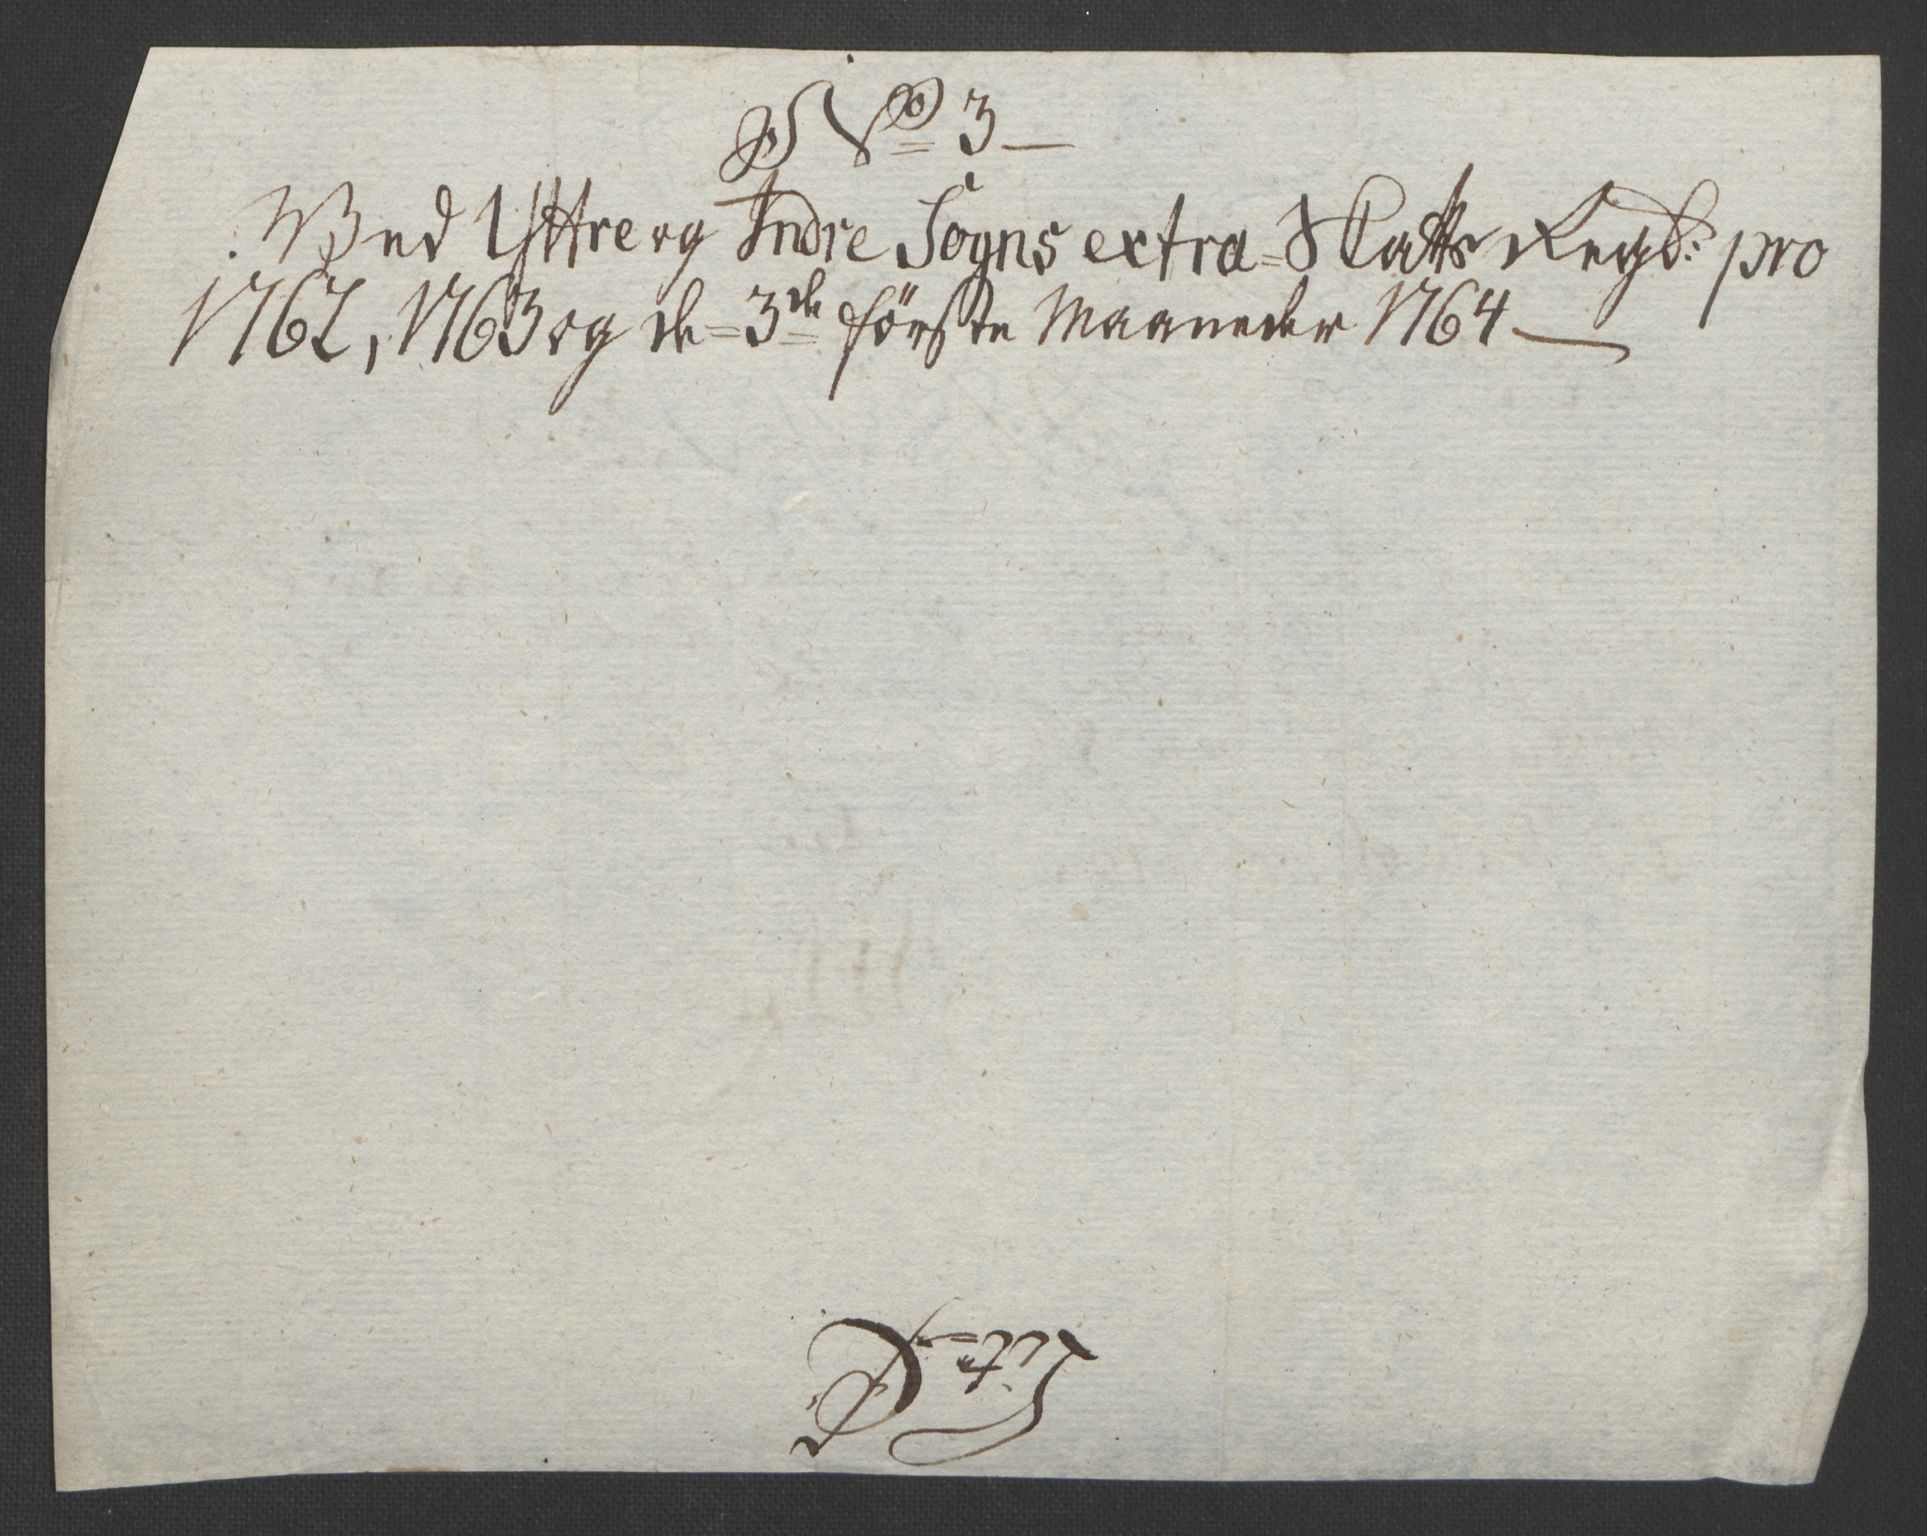 No 3
Ved Yttre og Indre Sogns extra=Skatts Regsk: pro
1762, 1763 og de=3de förste Maaneder 1764